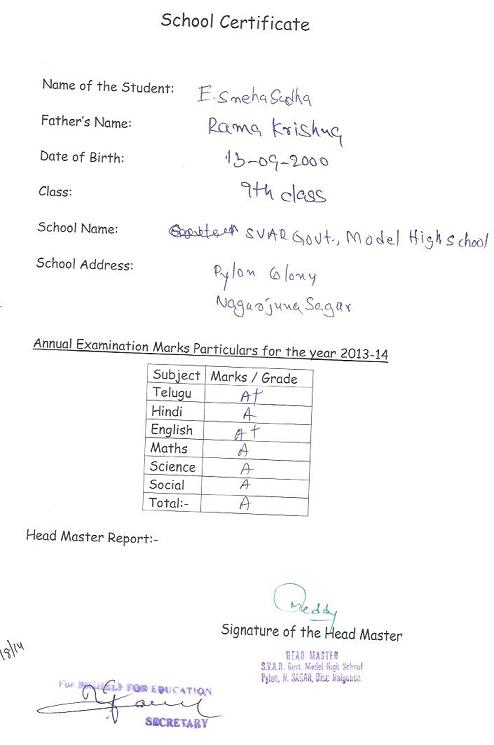 School Certificate
Name of the Student: E. Sneha Sudha
Father's Name: Rama Krishna
Date of Birth: 13-09-2000
Class: 9th class
School Name: SVAR Govt., Model High School
School Address: Pylon Colony
Nagarjuna Sagar
Annual Examination Marks Particulars for the year 2013-14
Subject Marks / Grade
Telugu A+
Hindi A
English A+
Maths A
Science A
Social A
Total:- A
Head Master Report:-
Reddy
Signature of the Head Master
HEAD MASTER
S.V.A.R. Govt. Model High School
Pylon, N. SAGAR, Dist: Nalgonda.
8/14
For FOR EDUCATION
SECRETARY